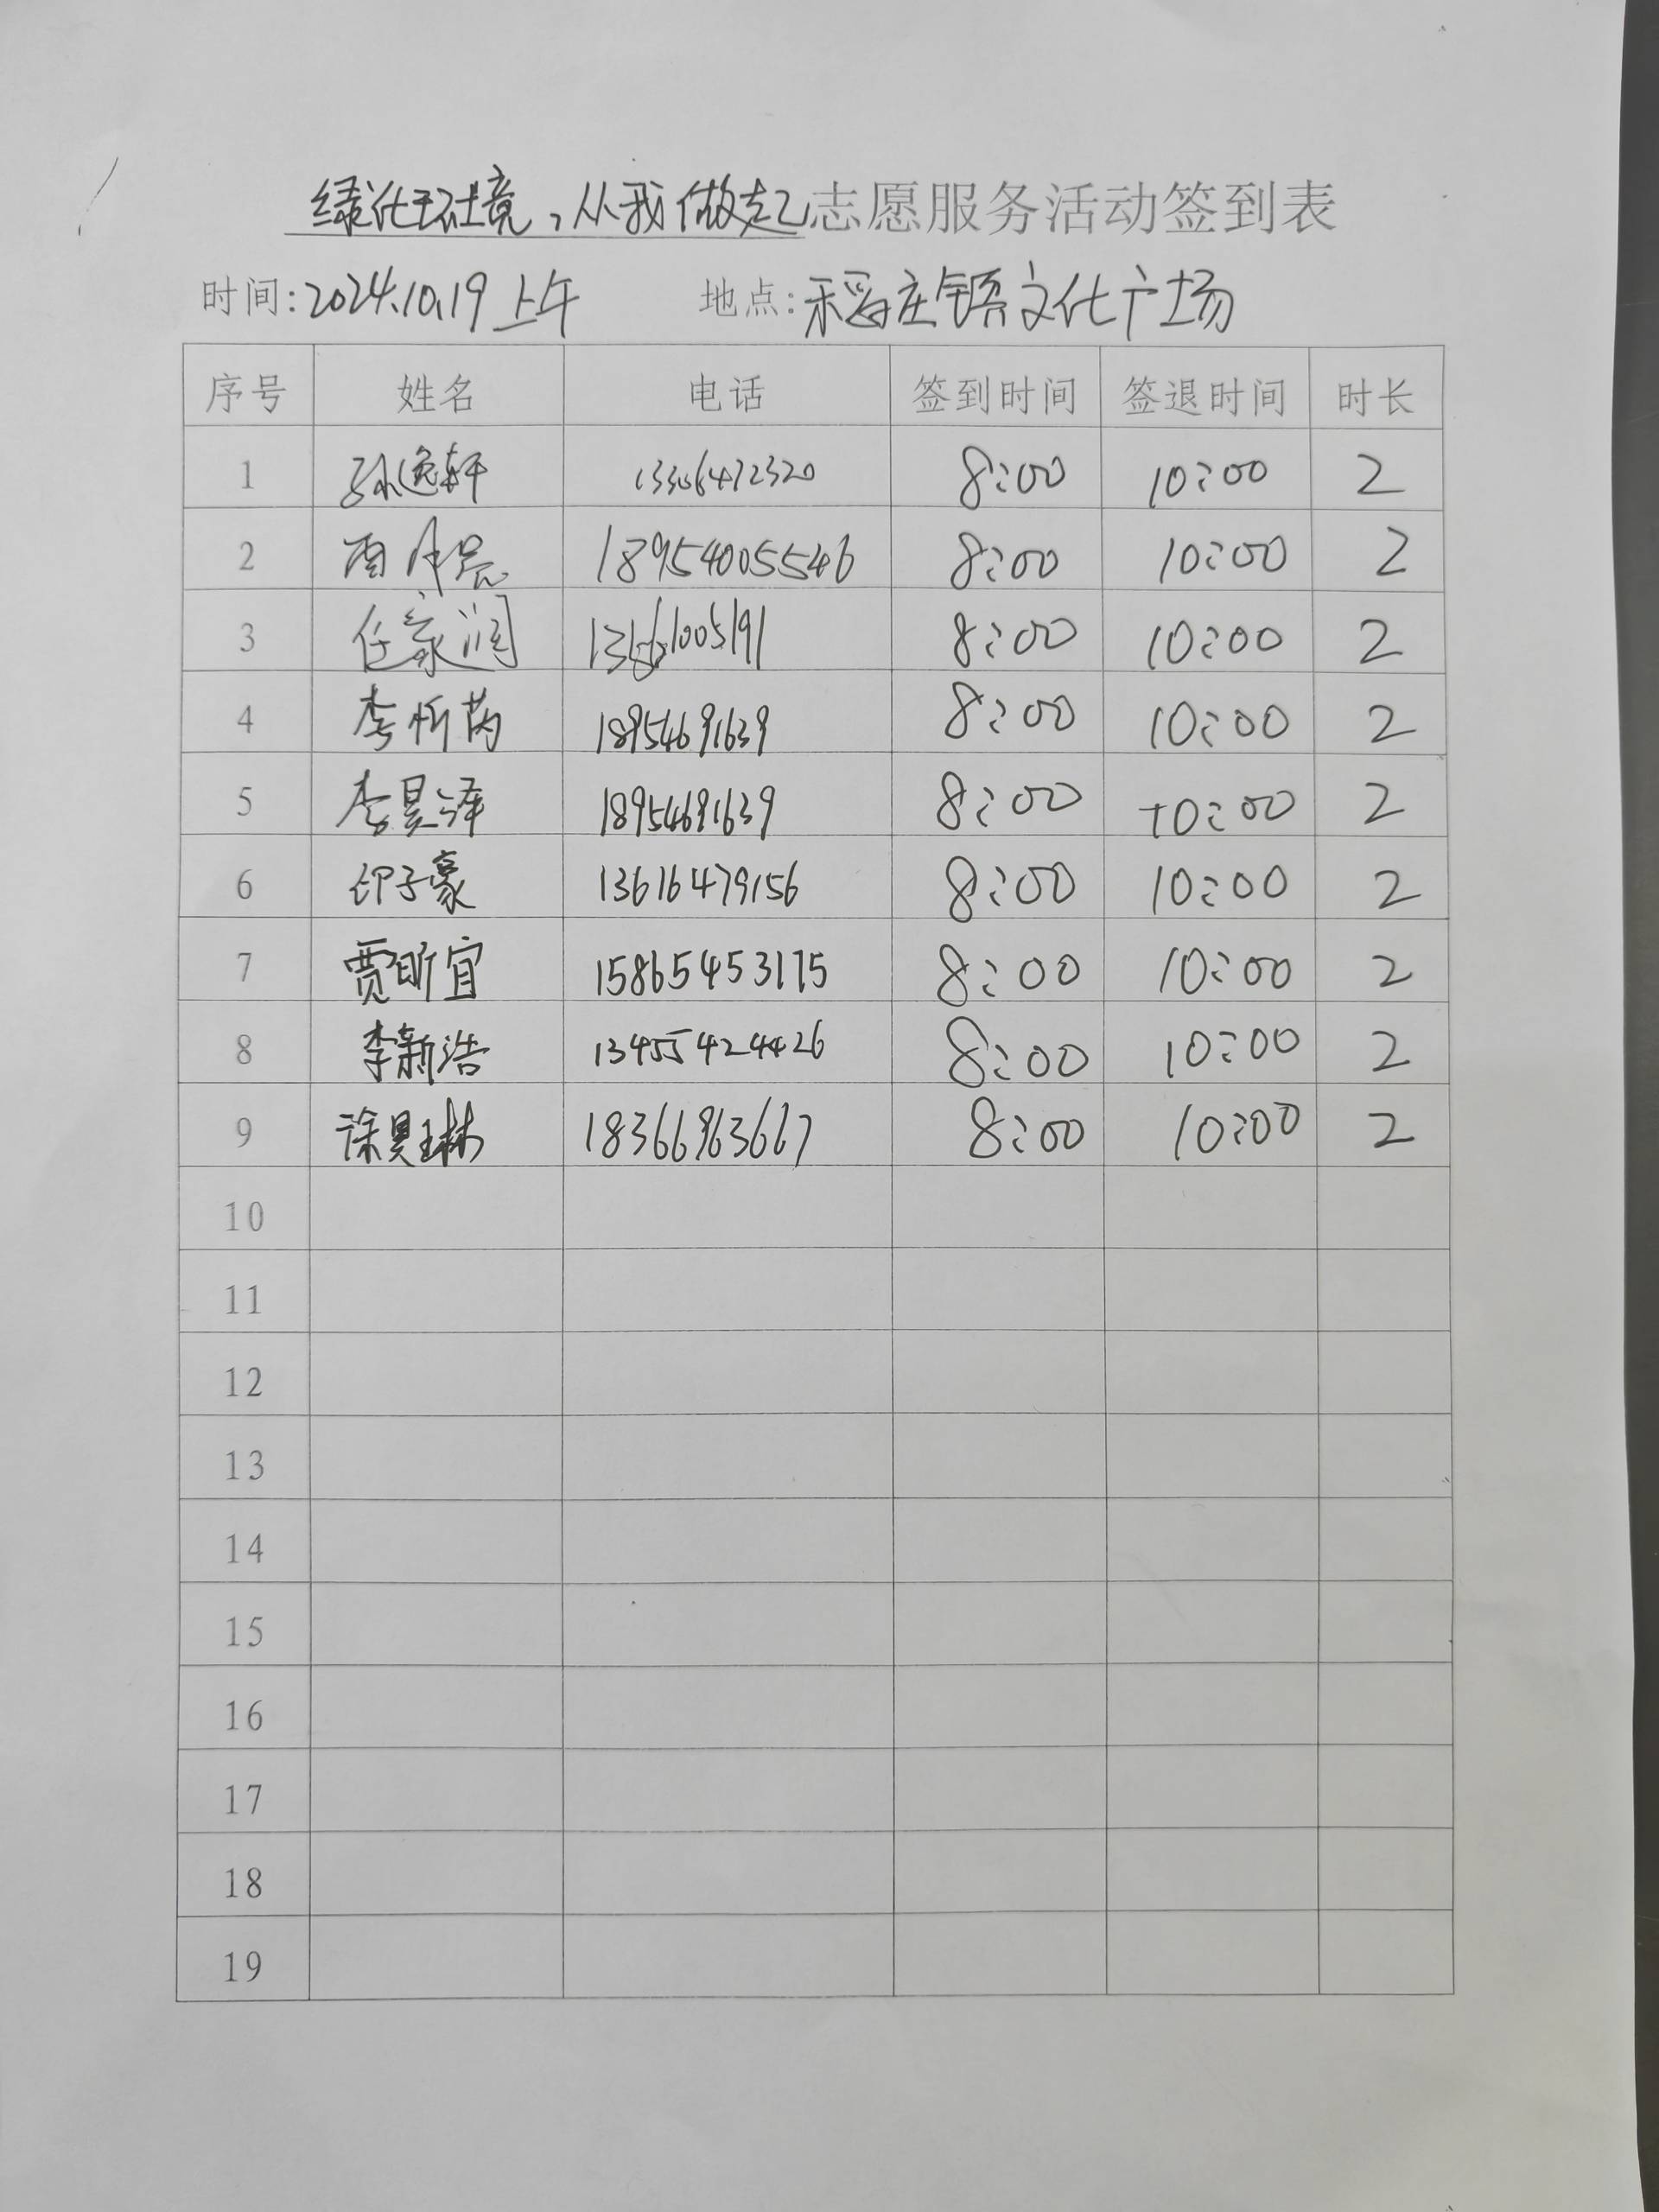 绿化环境,从我做起志愿服务活动签到表
时间:2024.10.19上午 地点:稻庄镇文化广场
序号 姓名 电话 签到时间 签退时间 时长
1 孙逸轩 13306472320 8:00 10:00 2
2 18954005546 8:00 10:00 2
3 任家润 8:00 10:00 2
4 李忻芮 18954691639 8:00 10:00 2
5 李昊泽 18954691639 8:00 10:00 2
6 印子豪 13616479156 8:00 10:00 2
7 贾昕宜 15865453175 8:00 10:00 2
8 李新浩 13455424426 8:00 10:00 2
9 涂昊琳 18366963667 8:00 10:00 2
10
11
12
13
14
15
16
17
18
19